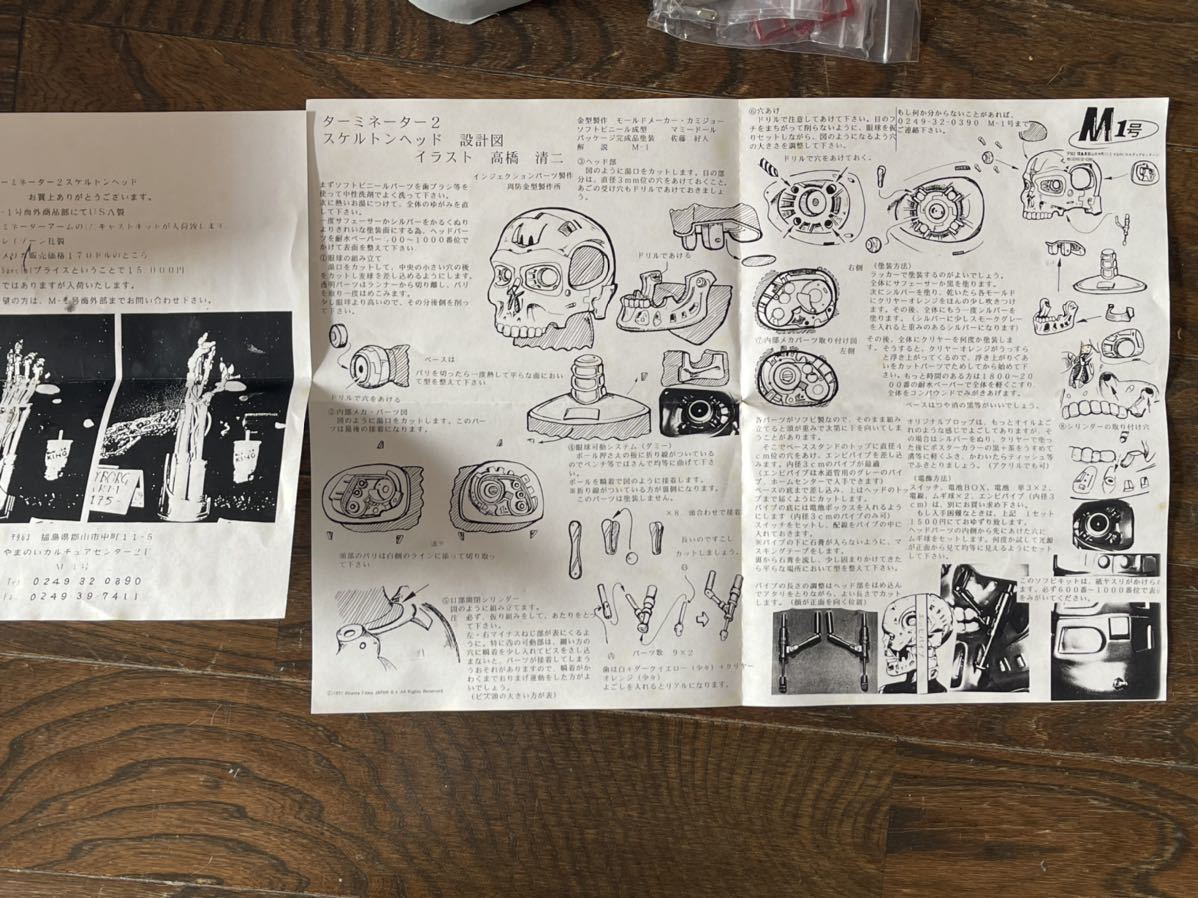 ーミネーター2スケルトンヘッド
お買上ありがとうございます。
-1号商外商品部にてUSA製
ミネーターアームの
キャストキットが入荷致し
販売価格170ドルのところ
プライスということで15,000円
ではありますが入荷いたします。
望の方は、M-1号商外部までお問い合わせ下さい。
福島県郡山市中町11-5
やまのいカルチュアセンター2F
M1号
0249 32 0890
0249-39-7411
ターミネーター2
スケルトンヘッド 設計図
イラスト 高橋 清二
金型製作 モールドメーカー・カミジョー
ソフトビニール成型 マミードール
パッケージ完成品塗装 佐藤 好人
解 説 M-1
インジェクションパーツ製作
周防金型製作所
まずソフトビニールパーツを歯ブラシ等を
使って中性洗剤でよく洗って下さい。
次に熱いお湯につけて、全体のゆがみを直
して下さい。
一度サフェーサーかシルバーをかるくぬり
よりきれいな塗装面にする為、ヘッドパー
ツを耐水ペーパー400~1000番位で
かけて表面を整えて下さい。
①眼球の組み立て
湯口をカットして、中央の小さい穴の後
をカットし支球を差し込めるようにします。
透明パーツはランナーから切り離し、バリ
を取り一度はめこみます。
少し眼球より高いので、その分後側を削っ
て下さい。
ベースは
バリを切ったら一度熱して平らな面におい
て型を整えて下さい
ドリルで穴をあける
②内部メカ・パーツ図
図のように湯口をカットします。このパー
ツは最後の接着になります。
頭部のバリは白側のラインに添って切り取っ
て下さい
③ヘッド部
図のように湯口をカットします。目の部
分は、直径3mm位の穴をあけておくこと。
あごの受け穴もドリルであけておきましょ
う。
ドリルであける
④眼球可動システム(ダミー)
ボール押さえの板に折り線がついている
のでペンチ等ではさんで均等に曲げて下さ
い。
ボールを瞬着で図のように接着します。
※折り線がついている方が裏側になります。
このパーツは塗装しません。
×8 頭合わせで接着
長いのですこし
カットしましょう。
パーツ数 9×2
内
⑤口部開閉シリンダー
図のように組み立てます。
注 必ず、仮り組みをして、あたりをと
って下さい。
左・右マイナスねじ部が表にくるよ
うに。特に西の可動部は、細い方の
穴に瞬着を少し入れてビスをさし込
まないと、パーツが接着してしまう
おそれがありますので、瞬着がか
わくまでおりまげ運動をした方がよ
いでしょう。
(ビズ頭の大きい方が表)
歯は白+ダークイエロー(少々)+クリヤー
オレンジ(少々)
よごしを入れるとリアルになります。
⑥穴あけ
ドリルで注意してあけて下さい。目のフ
チをまちがって削らないように、眼球を仮
りセットしながら、図のようになるよう穴
の大きさを調整して下さい。
ドリルで穴をあけておく。
もし何か分からないことがあれば、
0249-32-0390 M-1号まで
ご連絡下さい。
M1号
右側
左側
⑦内部メカパーツ取り付け図
(塗装方法)
ラッカーで塗装するのがよいでしょう。
全体にサフェーサーか黒を塗ります。
次にシルバーを塗り、乾いたら各モールド
にクリヤーオレンジをほんの少し吹きつけ
ます。その後、全体にもう一度シルバーを
塗ります。(シルバーに少しスモークグレー
を入れると重みのあるシルバーになります)
その後、全体にクリヤーを何度か塗装しま
す。そうすると、クリヤーオレンジがうっすら
と浮き上がってくるので、浮き上がりぐあ
いをカットパーツでためしてから始めて下
さい。もっと時間のある方は1800~20
00番の耐水ペーパーで全体を軽くこすり、
全体をコンパウンドでみがきあげます。
ベースはつや消の黒等がいいでしょう。
各パーツがソフビ製なので、そのまま組み
立てると頭が重みで次第に下を向いてしま
うことがあります。
そこでベーススタンドのトップに直径4
cm位の穴をあけ、エンビパイプを差し込み
ます。内径3cmのパイプが最適
(エンビパイプは水道管用のグレーのパイ
プ、ホームセンターで入手できます)
ベースの底まで差し込み、上はヘッドのトッ
プまで届くようにカットします。
パイプの底には電池ボックスを入れるよう
にします(内径3cmのパイプのみ可)
スイッチをセットし、配線をパイプの中に
入れておきます。
※パイプの下に石膏が入らないように、マ
スキングテープをします。
裏から石膏を流し、少し固まりかけてきた
ら平らな場所において型を整えて下さい。
パイプの長さの調整はヘッド部をはめ込ん
でアタリをとりながら、よい長さでカット
します。(顔が正面を向く位置)
オリジナルプロップは、もっとオイルよご
れのような感じでよごしてありますが、そ
の場合はシルバーをぬり、クリヤーで塗っ
た後にポスターカラーの黒+茶をうすめて
溝等に軽くふき、かわいたらティッシュ等
でふきとりましょう。(アクリルでも可)
(電飾方法)
スイッチ、電池BOX、電池 単3×2、
電線、ムギ球×2、エンビパイプ(内径3
cm)は、別にお買い求め下さい。
もし入手困難なときは、上記 1セット
1500円にておゆずり致します。
ヘッドパーツの内側から先にあけた穴に
ムギ球をセットします。何度か試して光源
が正面から見て均等に見えるようにセット
して下さい。
⑧シリンダーの取り付け穴
このソフビキットは、紙ヤスリがかけられ
ます。必ず600番~1000番位で表面
をみがいてください。